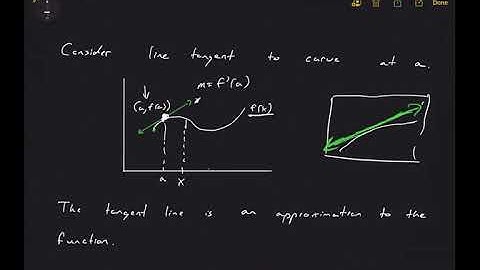 Done
Consider line tangent to curve at a.
m = f'(a)
(a, f(a))
f(x)
a x
The tangent line is an approximation to the
function.